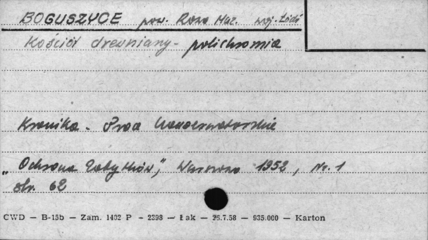 BOGUSZYCE pow. Rawa Maz. woj. Łódź
Kościół drewniany - polichromia
Kronika - Prace konserwatorskie
"Ochrona Zabytków", Warszawa 1952, Nr. 1
str. 62
CWD — B-15b — Zam. 1402 P - 2298 — Łak — 25.7.58 — 935.000 — Karton